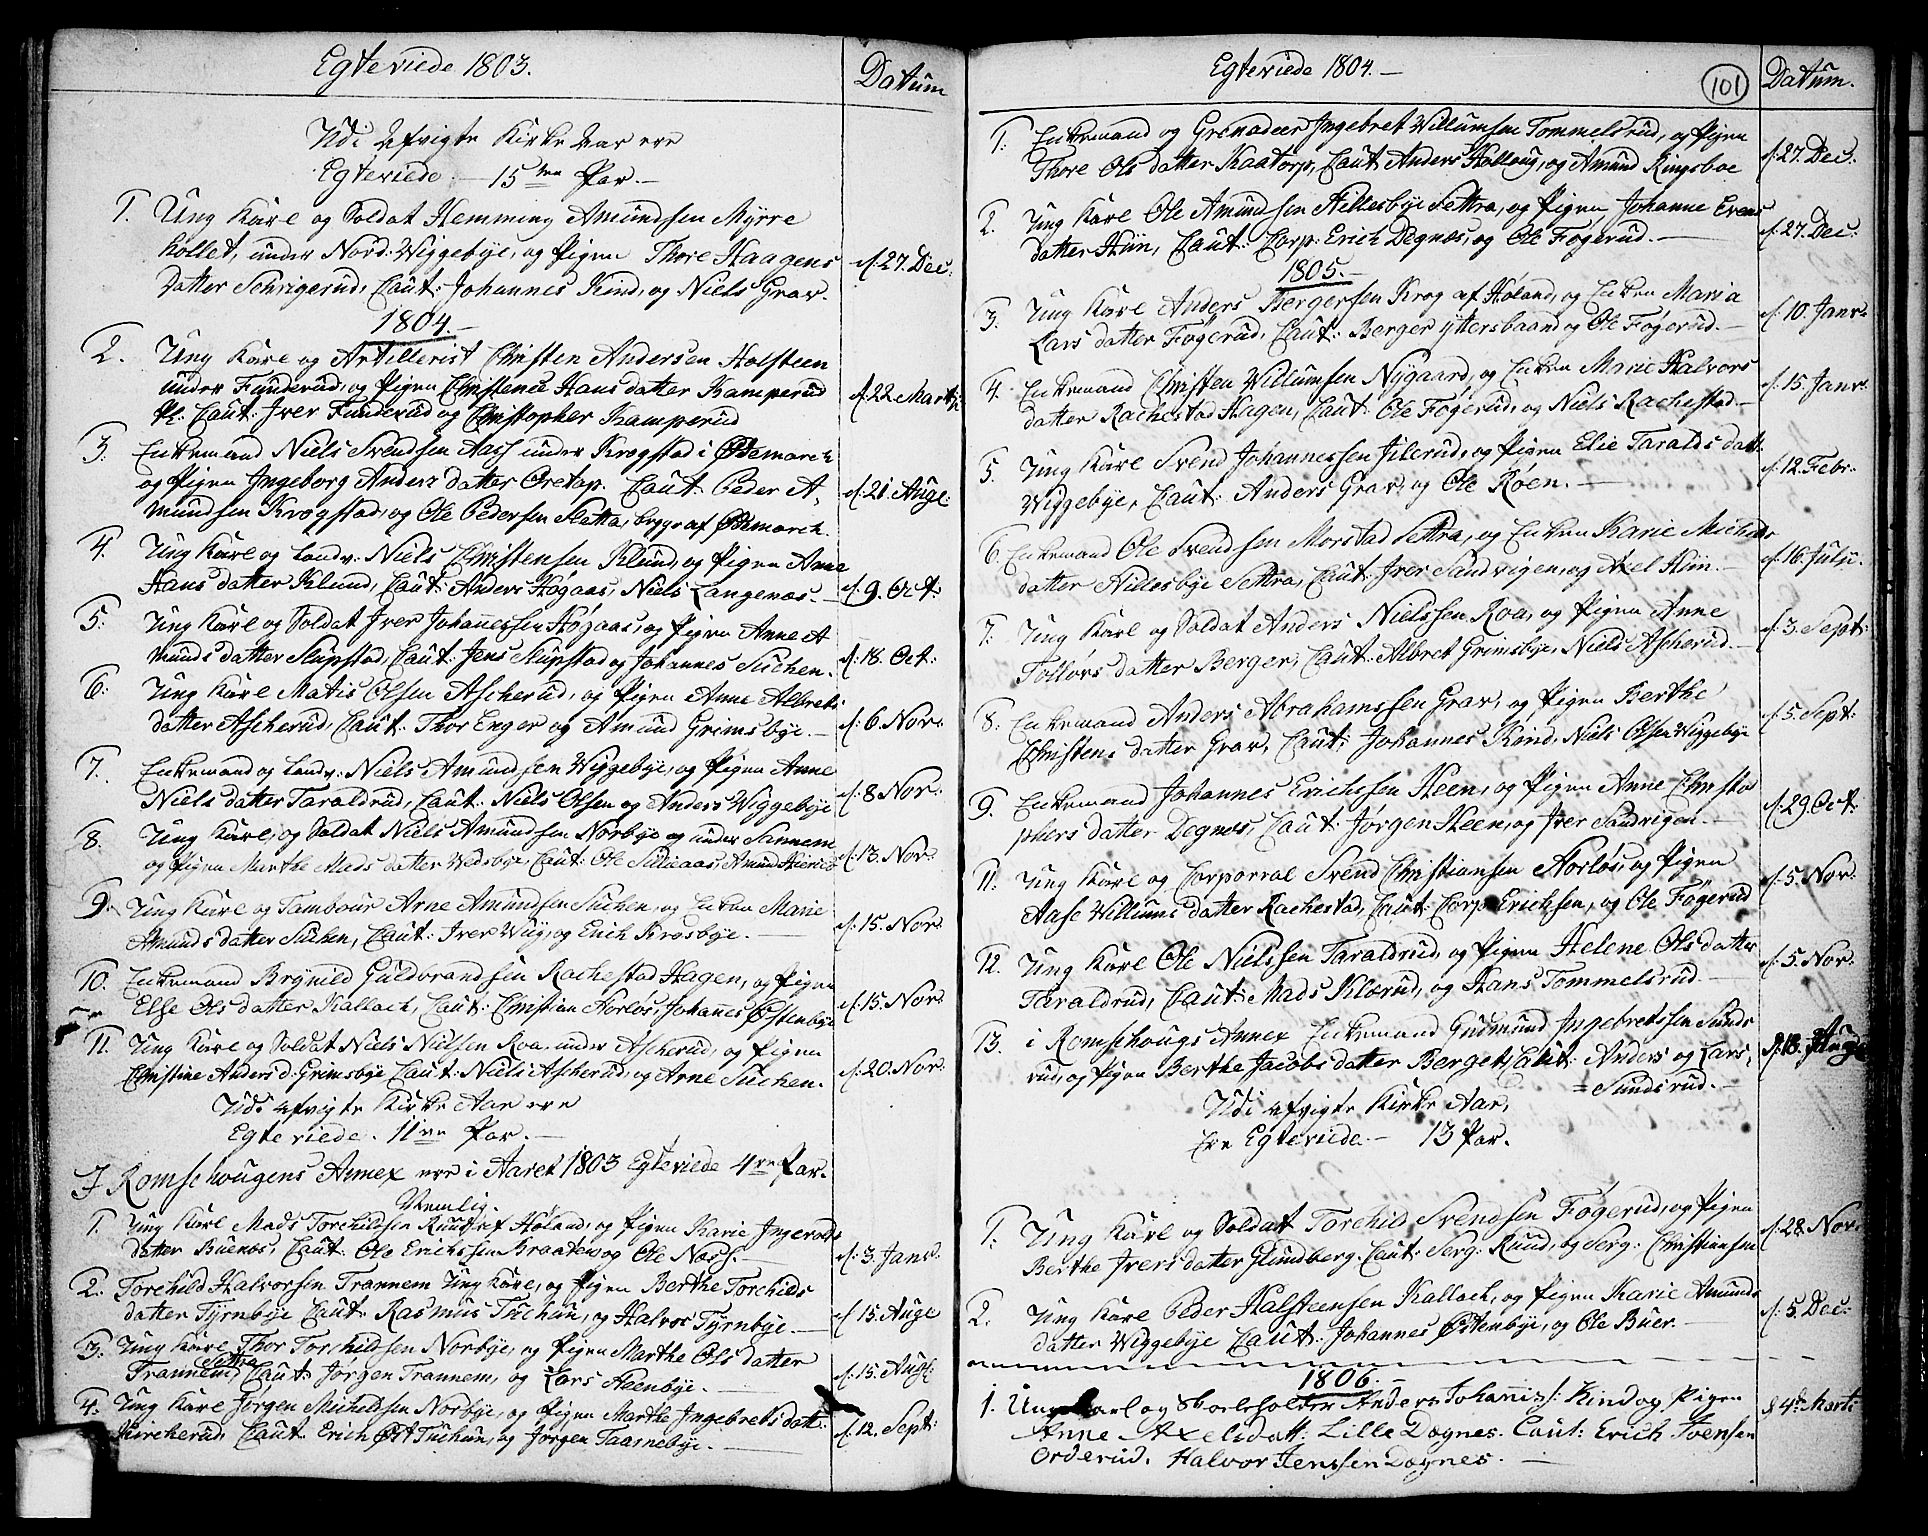 Egteviede 1803.
Datum
Udi Afvigte Kirke Aar ere
Egteviede. — 15 ten Par. —
1. Ung Karl og Soldat Hemming Amundsen Myrre
kollet, under Nord: Wiggebye, og Pigen Thore Haagens
datter Schrigerud, Caut: Johannes Kind, og Niels Grav.
d. 27. Dec:
1804. —
2. Ung Karl og Artillerist Christen Andersen Holsteen
under Funderud, og Pigen Christence Hans datter Kamperud
Pl. Caut: Iver Funderud og Christopher Kamperud
d. 22 Martji
3. Enkemand Niels Svendsen Aass under Krogstad i Ødemarch
og Pigen Ingeborg Anders datter Oretop. Caut: Peder A,
mundsen Krogstad, og Ole Pedersen Slætta, begge af Ødemarch.
d. 21. Auge:
4. Ung Karl og Landv: Niels Christensen Klund, og Pigen Anne
Hans datter Klund, Caut: Anders Høgaas, Niels Langenæs. —
d. 9. Oct:
5. Ung Karl og Soldat Iver Johannessen Høgaas, og Pigen Anne A
munds datter Slupstad, Caut: Jens Slupstad og Johannes Suchen.
d. 18. Oct:
6. Ung Karl Matis Olsen Ascherud, og Pigen Anne Albrets
datter Ascherud, Caut: Thor Enger og Amund Grimsbye. —
d. 6. Nov:
7. Enkemand og Landv: Niels Amundsen Wiggebye, og Pigen Anne
Niels datter Taraldrud, Caut: Niels Olsen og Anders Wiggebye
d. 8 Nov:
8. Ung Karl, og Soldat Niels Amundsen Norbye og under Sannem
og Pigen Marthe Mads datter Wedsbye, Caut: Ole Amund
d. 13. Nov:
9. Ung Karl og Tambour Arne Amundsen Suchen, og Enken Marie
Amunds datter Suchen, Caut: Iver Wiig, og Erich Krosbye. —
d. 15. Nov:
10. Enkemand Brynild Guldbrandsen Rachestad Hagen, og Pigen
Else Ols datter Kallach, Caut: Christian Norløs, Johannes Østenbye
d. 15. Nov:
11. Ung Karl og Soldat Niels Nielsen Roa under Ascherud, og Pigen
Christine Anders d: Grimsbye Caut: Niels Ascherud, og Arne Suchen.
d. 20. Nov:
Udi Afvigte Kirke Aar ere
Egteviede. 11 ve Par. —
I Romschougens Annex ere i Aaret 1803 Egteviede 4 re Par.
Nemlig.
1. Ung Karl Mads Torchildsen Ruud af Høland, og Pigen Karie Ingerols
datter Buenæs, Caut: Ole Erichssen Braaten og Ole Næss. —
d. 3. Janv.
2. Torchild Halvorsen Trannem Ung Karl, og Pigen Berthe Torchilds
datter Tyrnbye Caut: Rasmus Tuchun, og Halvor Tyrnbye. —
d. 15. Auge
3. Ung Karl Thor Torchildsen Norbye, og Pigen Marthe Ols datter
Trannem Settra, Caut: Jørgen Trannem, og Lars Heenbye. —
d. 15. Aug:
4. Ung Karl Jørgen Michelsen Norbye, og Pigen Marthe Ingebrets datt:
Kircherud, Caut: Erich Øst Tuchun, og Jørgen Taarnebye. —
d. 12. Sept:
Egteviede 1804. —
101
Datum.
1. Enkemand og Grenadeer Ingebret Willumsen Tommelsrud, og Pigen
Thore Ols datter Kaatorp, Caut: Anders Holloug, og Amund Ringsboe
d. 27. Dec:
2. Ung Karl Ole Amundsen Hillesbye Settra, og Pigen Johanne Evens
datter Hiin, Caut: Corp: Erich Degnæs, og Ole Føgerud. —
d. 27. Dec:
1805. —
3. Ung Karl Anders Bergersen Krog af Høland, og Enken Maria
Lars datter Føgerud, Caut: Berger Yttersbaand og Ole Føgerud. —
d. 10. Janv:
4. Enkemand Christen Willumsen Nygaard, og Enken Marie Halvors
datter Rachestad Hagen, Caut: Ole Føgerud, og Niels Rachestad. —
d. 15. Janv.
5. Ung Karl Svend Johannessen Jilerud, og Pigen Elie Taralds datt:
Wiggebye, Caut: Anders Grav, og Ole Røen. —
d. 12. Febr:
6. Enkemand Ole Svendsen Morstad Settra, og Enken Karie Michels
datter Hillesbye Settra, Caut: Iver Sandvigen, og Axel Hiin. —
d. 16. Julji.
7. Ung Karl og Soldat Anders Nielssen Roa, og Pigen Anne
Tollovs datter Berger, Caut: Albret Grimsbye, Niels Ascherud. —
d. 3. Sept:
8. Enkemand Anders Abrahamssen Grav, og Pigen Berthe
Christens datter Grav, Caut: Johannes Kind, Niels Olsen Wiggebye
d. 5. Sept:
9. Enkemand Johannes Erichssen Heen, og Pigen Anne Christo
phers datter Degnæs, Caut: Jørgen Heen, og Iver Sandvigen. —
d. 29. Oct:
11. Ung Karl og Corporral Svend Christiansen Norløs, og Pigen
Aase Willums datter Rachestad, Caut: Corp: Erichsen, og Ole Føgerud
d. 5. Nov:
12. Ung Karl Ole Nielssen Taraldrud, og Pigen Helene Ols datter
Taraldrud, Caut: Mads Klærud, og Hans Tommelsrud. —
d. 5. Nov:
13. i Romschougs Annex Enkemand Gudmund Ingebretssen Sunds
rud, og Pigen Berthe Jacobs datter Berget, Caut: Anders og Lars
= Sundsrud. —
d. 18. Auge
Udi Afvigte Kirke Aar,
Ere Egteviede. — 13 Par.
1. Ung Karl og Soldatt Torchild Svendsen Føgerud, og Pigen
Berthe Ivers datter Glundberg. Caut: Serg: Ruud, og Serg: Christiansen
d. 28. Nov:
2. Ung Karl Peder Halsteensen Kallach, og Pigen Karie Amunds
datter Wiggebye Caut: Johannes Østenbye, og Ole Buer. —
d. 5. Dec:
1806. —
1. Ung Karl og Skoleholder Anders Johannis: Kind og Pigen
Anne Axelsdatt: Lille Degnes. Caut: Erich Ivensen
Orderud. Halvor Jenssen Dægnes. —
d 4de Marti